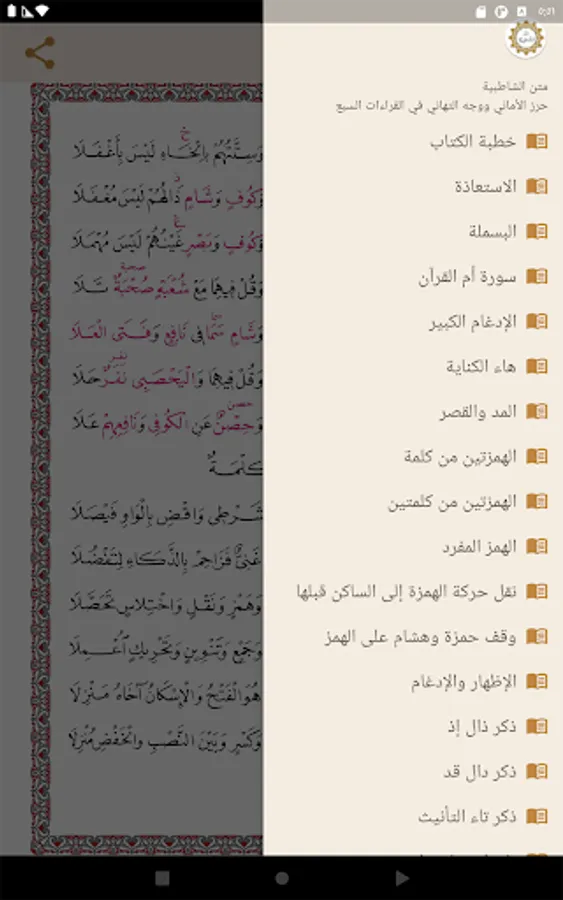 0:31
متن الشاطبية
حرز الأماني ووجه التهاني في القراءات السبع
خطبة الكتاب
الاستعاذة
البسملة
سورة أم القرآن
الإدغام الكبير
هاء الكناية
المد والقصر
الهمزتين من كلمة
الهمزتين من كلمتين
الهمز المفرد
نقل حركة الهمزة إلى الساكن قبلها
وقف حمزة وهشام على الهمز
الإظهار والإدغام
ذكر ذال إذ
ذكر دال قد
ذكر تاء التأنيث
وَسِتَّتُهُمْ بِالْخَاءِ لَيْسَ بِأَغْفَلَا
وَكُوفٍ وَشَامٍ ذَالُهُمْ لَيْسَ مُغْفَلَا
وَكُوفٍ وَبَصْرٍ غَيْنُهُمْ لَيْسَ مُهْمَلَا
وَقُلْ فِيهِمَا مَعْ شُعْبَةٍ صُحْبَةٌ تَلَا
وَشَامٍ سَمَا فِي نَافِعٍ وَفَتَى الْعَلَا
وَقُلْ فِيهِمَا وَالْيَحْصَبِي نَفَرٌ حَلَا
وَحِصْنٌ عَنِ الْكُوفِي وَنَافِعِهِمْ عَلَا
كِلْمَةٌ
شَرْطِي وَاقْضِ بِالْوَاوِ فَيْصَلَا
غَنِيٌّ فَزَاحِمْ بِالذَّكَاءِ لِتَفْضُلَا
وَهَمْزٍ وَنَقْلٍ وَاخْتِلَاسٍ تَحَصَّلَا
وَجَمْعٍ وَتَنْوِينٍ وَتَحْرِيكٍ اُعْمِلَا
هُوَ الْفَتْحُ وَالْإِسْكَانُ آخَاهُ مَنْزِلَا
وَكَسْرٍ وَبَيْنَ النَّصْبِ وَالْخَفْضِ مُنْزِلَا